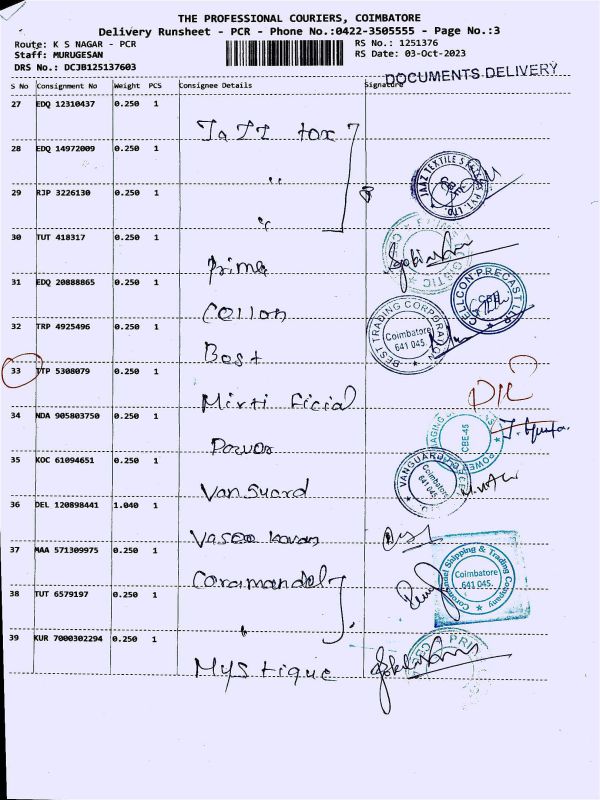 THE PROFESSIONAL COURIERS, COIMBATORE
Delivery Runsheet - PCR - Phone No.:0422-3505555 - Page No.:3
Route: K S NAGAR - PCR
RS No.: 1251376
Staff: MURUGESAN
RS Date: 03-Oct-2023
DRS No.: DCJB125137603
DOCUMENTS DELIVERY
S No Consignment No Weight PCS Consignee Details Signature
27 EDQ 12310437 0.250 1
28 EDQ 14972009 0.250 1
JAAZ TEXTILE PVT. LTD.
29 RJP 3226130 0.250 1
30 TUT 418317 0.250 1
Prima
31 EDQ 20888865 0.250 1
CELLCON PRECAST LLP
CBE
32 TRP 4925496 0.250 1
BEST TRADING CORPORATION
Coimbatore
641 045.
Best
33 TTP 5308079 0.250 1
34 NDA 905803750 0.250 1
POWER
CBE-45
Power
35 KOC 61094651 0.250 1
VANGUARD
Coimbatore
641 045.
Vanguard
36 DEL 120898441 1.040 1
37 MAA 571309975 0.250 1
Coramandel Shipping & Trading Company
Coimbatore
641 045.
Coramandel
38 TUT 6579197 0.250 1
39 KUR 7000302294 0.250 1
Mystique